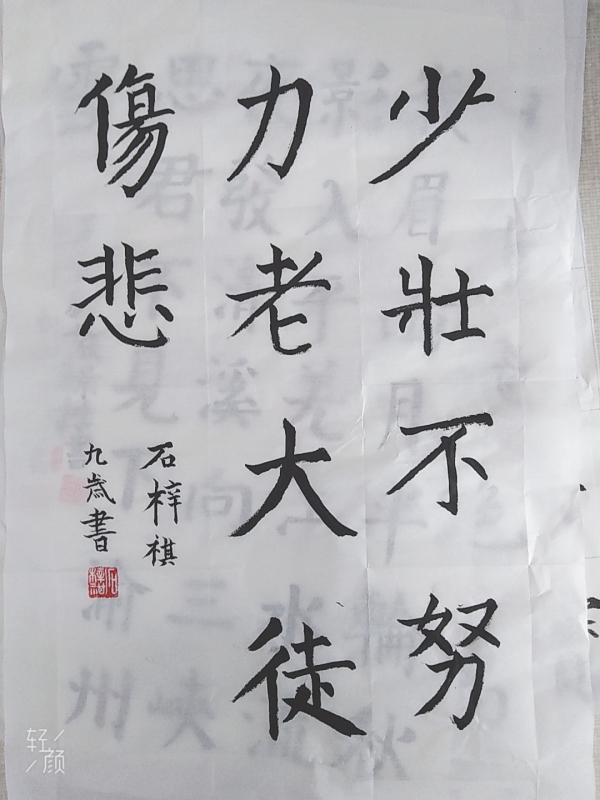 少壯不努
力老大徒
傷悲
石梓祺
九歲書
轻颜